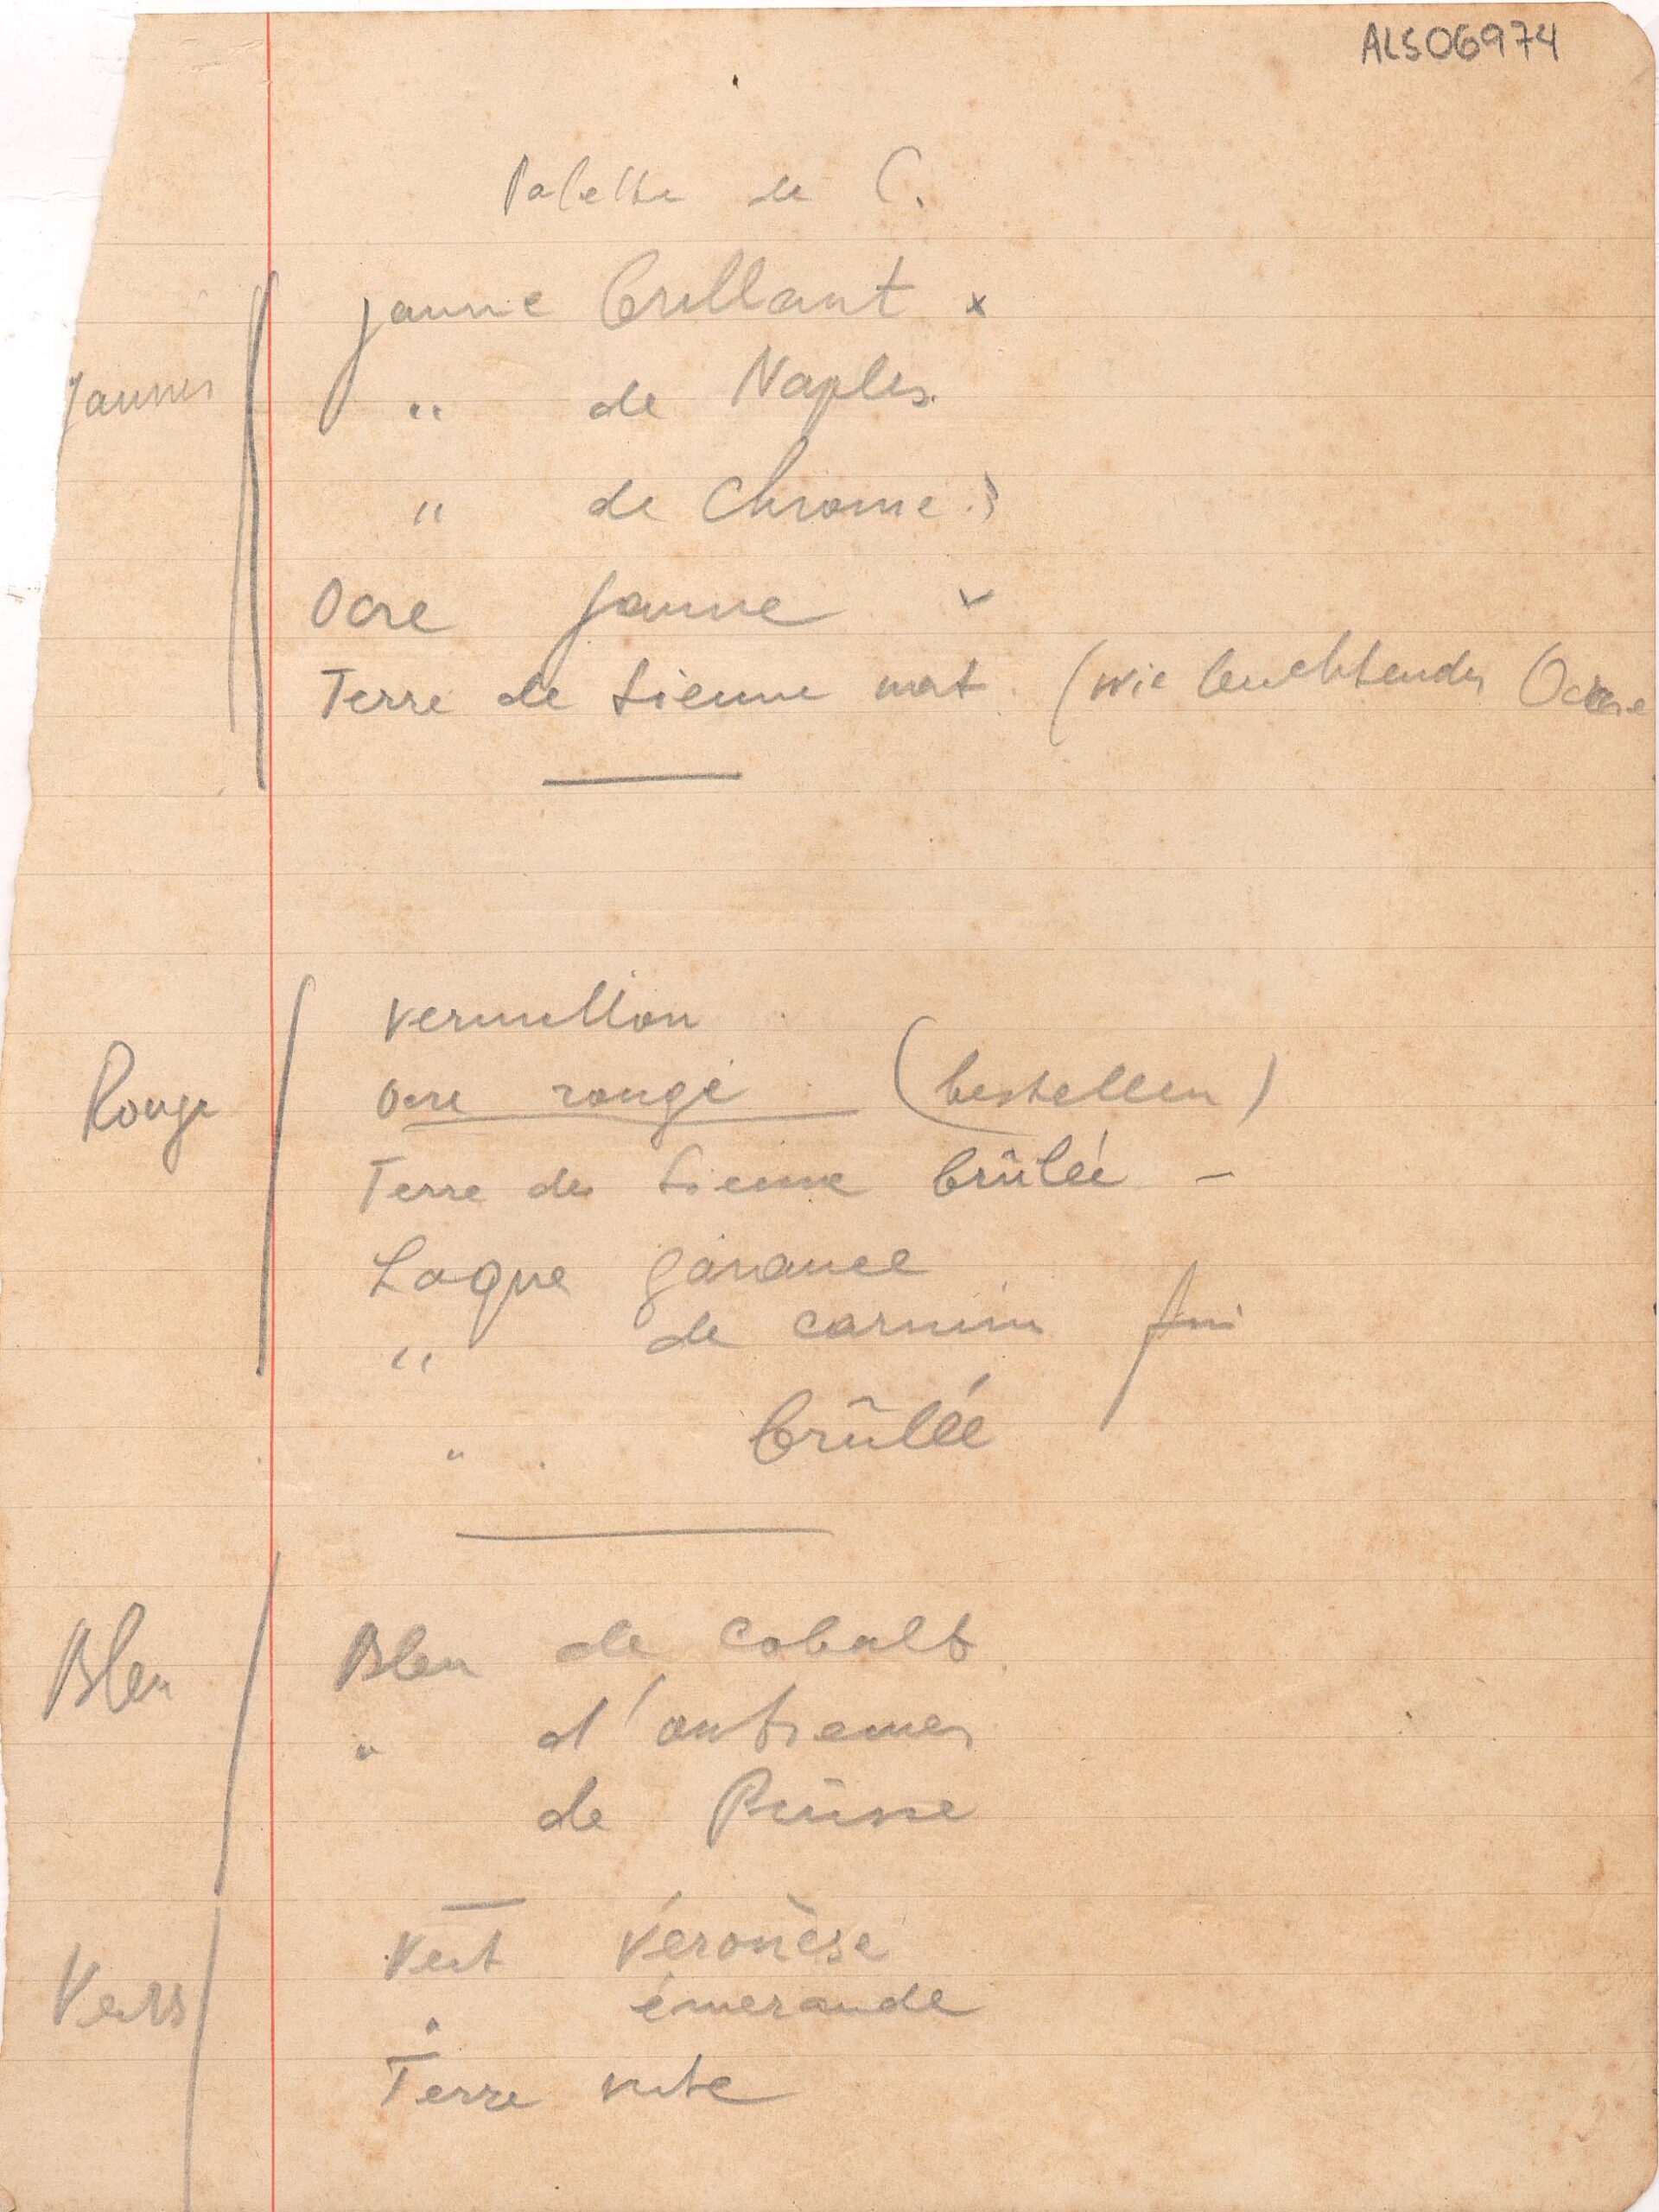 ALS06974
Palette de C.
Jaunes
Jaune brillant x
" de Naples.
" de Chrome
Ocre jaune
Terre de Sienne nat. (wie leuchtender Ocre
Rouge
Vermillon
Ocre rouge (bestellen)
Terre de Sienne brûlée –
Laque garance
" de carmin fin
" brûlée
Bleu
Bleu de cobalt
" d'outremer
de Prusse
Verts
Vert Véronèse
" émeraude
Terre verte